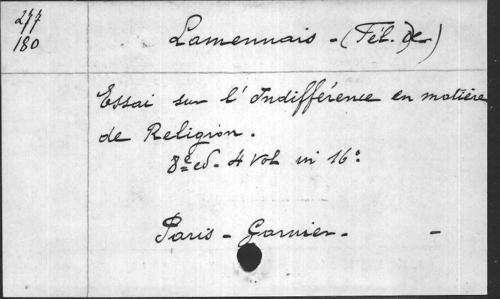 277
180
Lamennais - (Fél. de)
Essai sur l'Indifférence en matière
de Religion.
8e ed. 4 Vol in 16°
Paris - Garnier - -